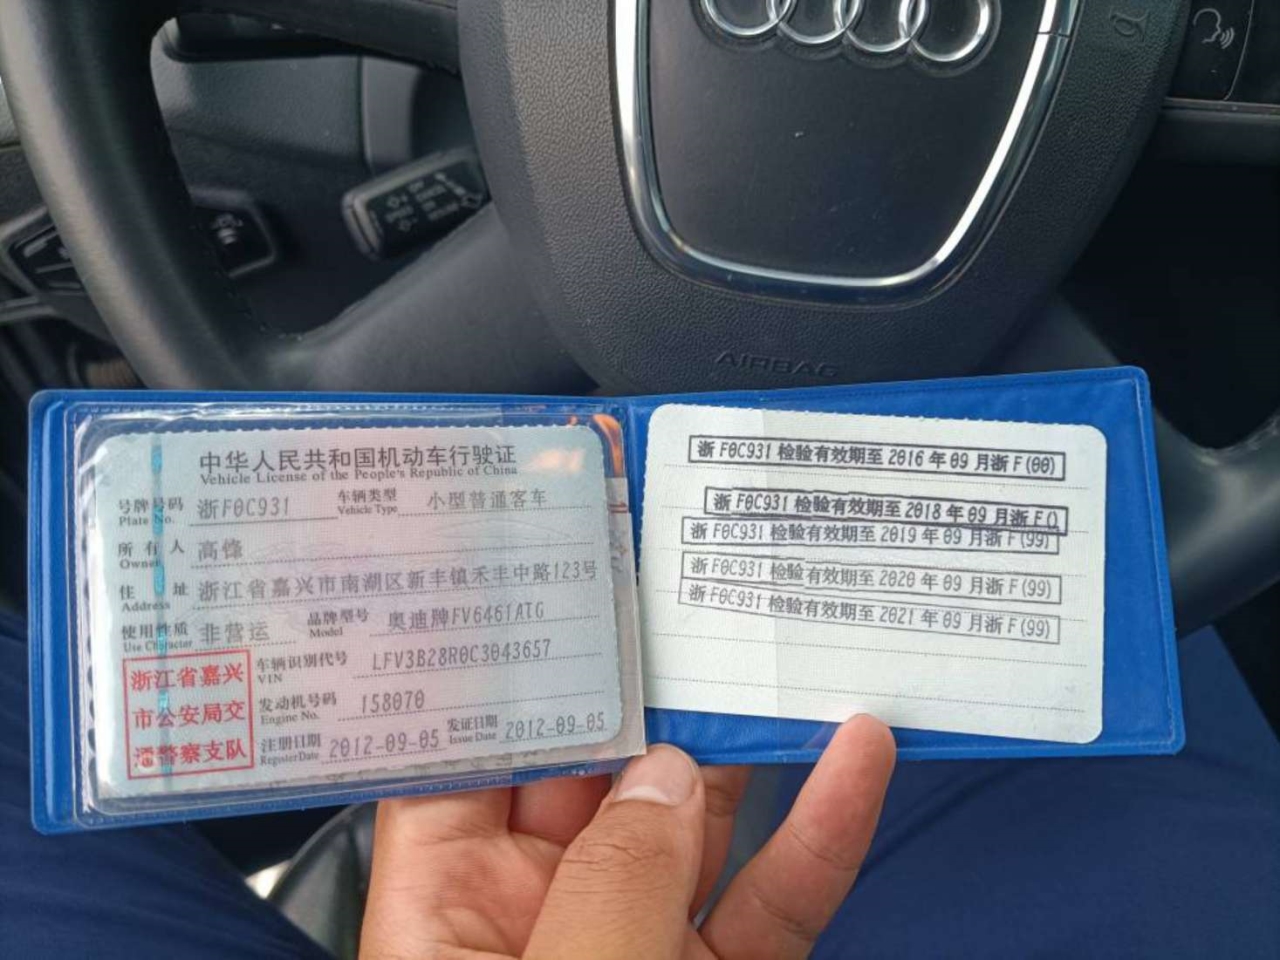 AIRBAG
中华人民共和国机动车行驶证
Vehicle License of the People's Republic of China
号牌号码 浙F0C931 车辆类型 小型普通客车
Plate No. Vehicle Type
所有人 高锋
Owner
住址 浙江省嘉兴市南湖区新丰镇禾丰中路123号
Address
使用性质 非营运 品牌型号 奥迪牌FV6461ATG
Use Character Model
浙江省嘉兴
市公安局交
通警察支队
车辆识别代号 LFV3B28R0C3043657
VIN
发动机号码 158070
Engine No.
注册日期 2012-09-05 发证日期 2012-09-05
Register Date Issue Date
浙F0C931 检验有效期至 2016 年 09 月浙F(00)
浙F0C931 检验有效期至 2018 年 09 月浙F0
浙F0C931 检验有效期至 2019 年 09 月浙F(99)
浙F0C931 检验有效期至 2020 年 09 月浙F(99)
浙F0C931 检验有效期至 2021 年 09 月浙F(99)